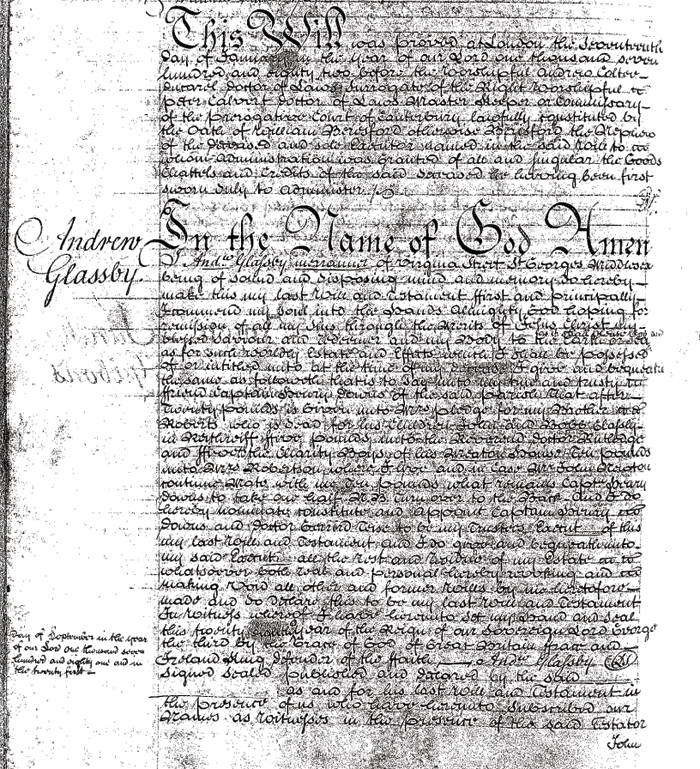 This Will was proved at London the Seventeenth
day of January in the year of our Lord one thousand seven
hundred and eighty two before the Worshipful Andrew Coltee
Ducarel doctor of Laws Surrogate of the Right Worshipful
Peter Calvert doctor of Laws Master Keeper or Commissary
of the Prerogative Court of Canterbury lawfully constituted by
the Oath of William Beresford otherwise Berrisford the Nephew
of the deceased and sole Executor named in the said Will to
whom Administration was Granted of all and Singular the Goods
Chattels and Credits of the said deceased he having been first
sworn duly to administer
Andrew
Glassby
In the Name of God Amen
I Andw Glassby marriner of Virginia Street St Georges Middlesex
being of sound and disposing mind and memory do hereby
make this my last Will and Testament ffirst and principally
I commend my soul into the hands Almighty God hoping for
remission of all my Sins through the Merits of Jesus Christ my
blessed Saviour and redeemer and my Body to the Earth
as for such worldly Estate and Effects which I shall be possessed
of or intitled unto at the time of my decease I give and bequeath
the same as followeth that is to say unto my true and trusty
ffriend Captain Henry downs of the said parish that after
twenty pounds is Given unto Mrs pledge for my Mother
Roberts who is dead for his Children John and Glassby
in ffive pounds unto the Reverend doctor
and ffive the Charity Boys of ten pounds
unto Mrs Robertson where I live and in Case Mr John
Continue Mate with me Ten pounds what remains Captn Henry
downs to take one half to the and I do
hereby nominate constitute and appoint Captain Henry
downs and doctor to be my Trustees of this
my last Will and Testament and I do give and bequeath unto
my said all the rest and residue of my Estate
whatsoever both real and personal hereby revoking and
making Void all other and former Wills by me heretofore
made and do declare this to be my last Will and Testament
In Witness whereof I have hereunto set my hand and seal
this twenty year of the Reign of our Sovereign Lord George
the third by the Grace of God of Great Britain ffrance and
Ireland King defender of the ffaith Andw Glassby
Signed sealed published and declared by the said
as and for his last Will and Testament in
the presence of us who have hereunto Subscribed our
Names as Witnesses in the presence of the said Testator
John
day of September in the year
of our Lord one thousand seven
hundred and eighty one and in
the twenty first